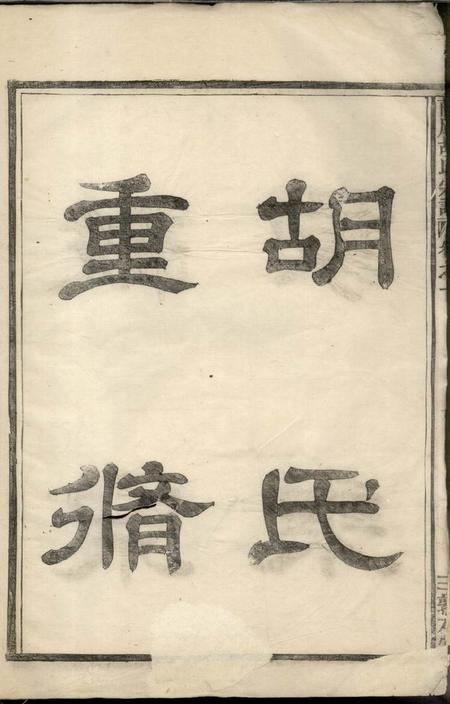 胡氏
重脩